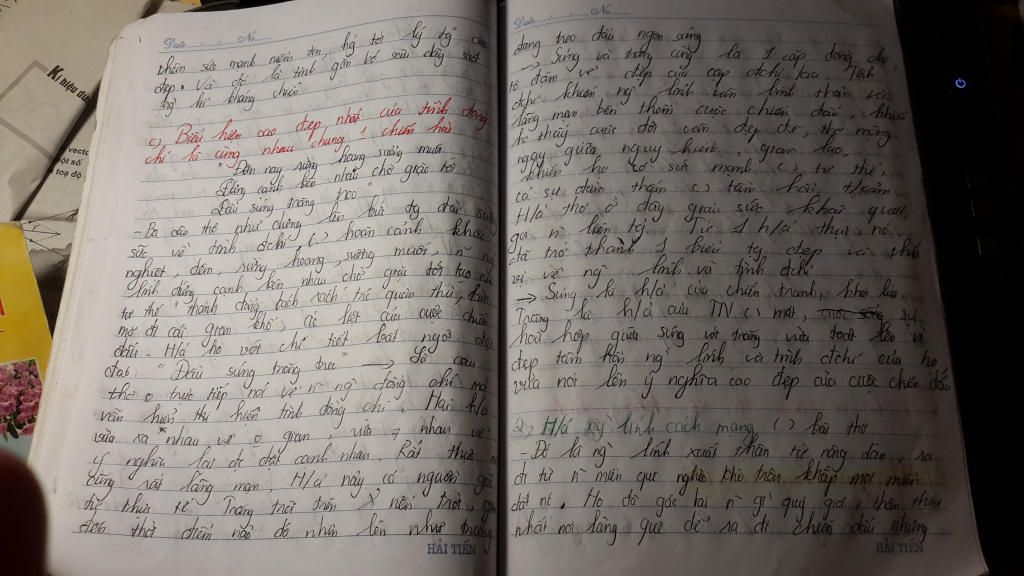 Date No
thêm sức mạnh niềm tin, hệ tới lý tg cao
đẹp. Và đc là tình gắn bó sâu dày suốt
c) Biểu hiện cao đẹp nhất của tình đồng
chí là cùng nhau chung 1 chiến hào
"Đêm nay rừng hoang sương muối
Đứng cạnh bên nhau chờ giặc tới
Đầu súng trăng treo"
- Ba câu thơ như dựng lên bức tg đài sừng
sững về tình đchí (.) hoàn cảnh khắc
nghiệt, đêm, rừng hoang, sương muối, n ng
lính đứng cạnh bên nhau chờ giặc tới tạo nên
tư thế thành đồng vách sắt trc quân thù,
mờ đi cái gian khổ, ác liệt của cuộc chiến
đấu. H/á họ với chi tiết bất ngờ độc
đáo: "Đầu súng trăng treo" Là câu
thơ o trực tiếp nói về n ng đồng chí mà
vẫn hiện thể hiện tình đồng chí. Hai h/á
vừa xa nhau về o gian, vừa nhau về
ý nghĩa lại đc đặt cạnh nhau. Rất thực mà
cũng rất lãng mạn. H/á này có nguồn gốc
từ thực tế. Trăng trôi trên nền trời,
đến thời điểm nào đó nhìn lên như trăng
HẢI TIẾN
Date No
đang treo đầu ngọn súng
→ Súng và trăng cũng là 1 cặp đồng chí,
tô đậm vẻ đẹp của cặp đchí kia. Tình
đchí khiến ng lính vẫn bình thản và
lãng mạn bên thềm cuộc chiến đấu, khiến
họ thấy cuộc đời vẫn đẹp đẽ, thơ mộng
ngay giữa nguy hiểm, gian lao,
khiến họ có sức mạnh (.) tư thế,
có sự đằm thắm (.) tâm hồn, t/cảm.
H/á thơ ở đây giàu sức khái quát,
gợi n liên tg. Từ 1 h/á thực, nó
đã trở thành 1 biểu tg đẹp và thú
vị về ng lính và tình đchí.
→ Súng là h/á của chiến tranh, khói lửa.
Trăng là h/á của TN (.) mát, sự
hoà hợp giữa súng với trăng vừa toát lên vẻ
đẹp tâm hồn ng lính và tình đchí của họ
vừa nói lên ý nghĩa cao đẹp của cuộc chiến đấu
2) H/á ng lính cách mạng (.) bài thơ
- Đó là ng lính xuất thân từ nông dân, ra
đi từ n miền quê nghèo khó trên khắp mọi miền
đất nc. Họ đã gác lại n gì quý giá, thân thiết
nhất nơi làng quê để ra đi chiến đấu những
HẢI TIẾN
Kí hiệu
vecto
một số
toạ độ